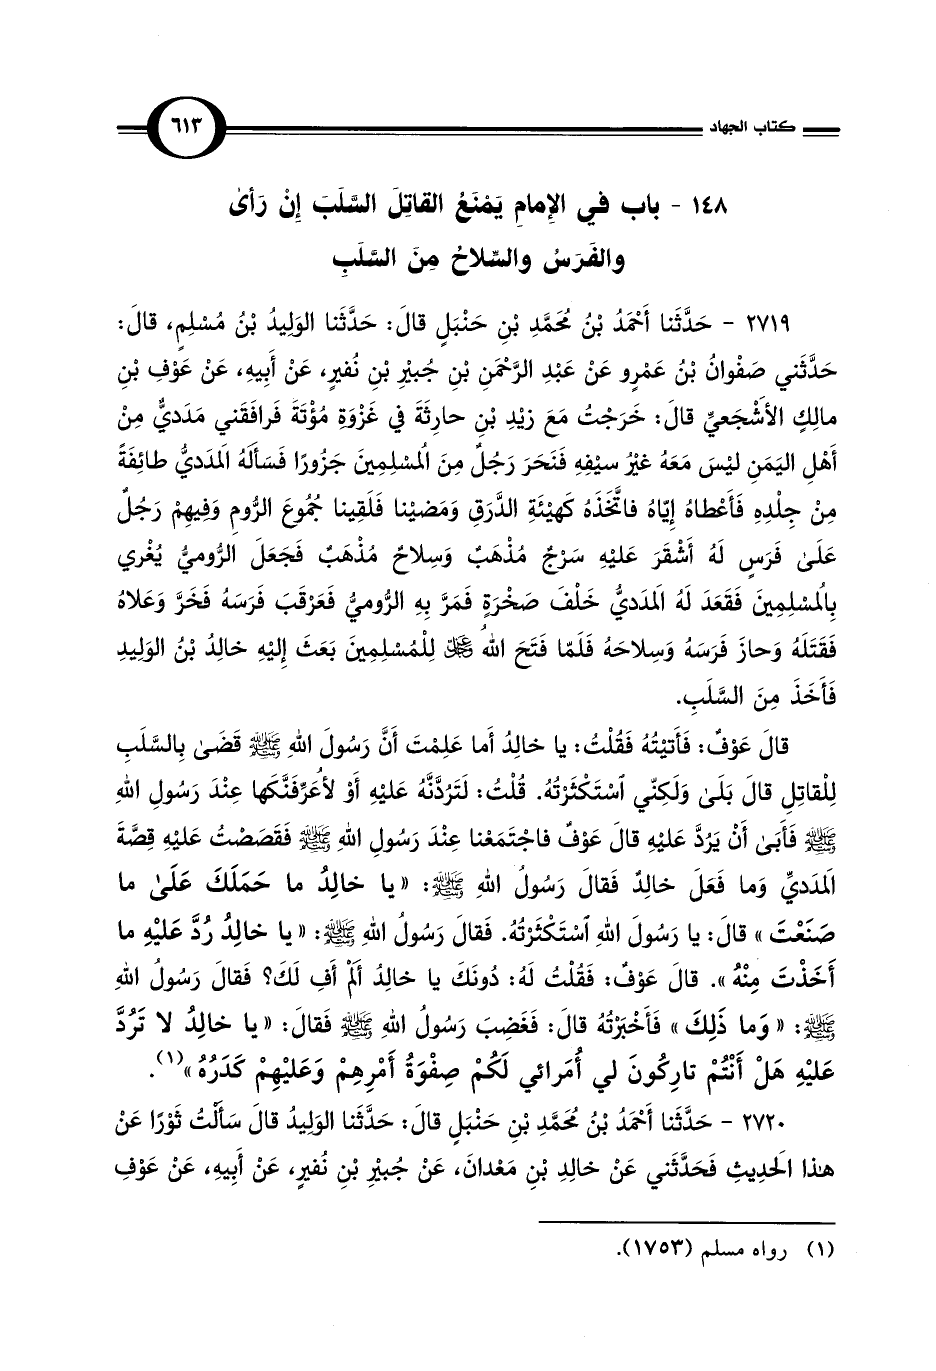 كتاب الجهاد ٦١٣
١٤٨ - باب في الإِمامِ يَمْنَعُ القاتِلَ السَّلَبَ إِنْ رَأىٰ
والفَرَسُ والسِّلاحُ مِنَ السَّلَبِ
٢٧١٩ - حَدَّثَنا أَحْمَدُ بْنُ مُحَمَّدِ بْنِ حَنْبَلٍ قالَ: حَدَّثَنا الوَلِيدُ بْنُ مُسْلِمٍ، قالَ:
حَدَّثَني صَفْوانُ بْنُ عَمْرٍو عَنْ عَبْدِ الرَّحْمَنِ بْنِ جُبَيْرِ بْنِ نُفَيْرٍ، عَنْ أَبِيهِ، عَنْ عَوْفِ بْنِ
مالِكٍ الأَشْجَعيِّ قالَ: خَرَجْتُ مَعَ زَيْدِ بْنِ حارِثَةَ في غَزْوَةِ مُؤْتَةَ فَرافَقَني مَدَديٌّ مِنْ
أَهْلِ اليَمَنِ لَيْسَ مَعَهُ غَيْرُ سَيْفِهِ فَنَحَرَ رَجُلٌ مِنَ المُسْلِمِينَ جَزُورًا فَسَأَلَهُ المَدَديُّ طائِفَةً
مِنْ جِلْدِهِ فَأَعْطاهُ إِيّاهُ فاتَّخَذَهُ كَهَيْئَةِ الدَّرَقِ وَمَضَيْنا فَلَقِينا جُمُوعَ الرُّومِ وَفِيهِمْ رَجُلٌ
عَلَىٰ فَرَسٍ لَهُ أَشْقَرَ عَلَيْهِ سَرْجٌ مُذْهَبٌ وَسِلاحٌ مُذْهَبٌ فَجَعَلَ الرُّوميُّ يُغْري
بِالمُسْلِمِينَ فَقَعَدَ لَهُ المَدَديُّ خَلْفَ صَخْرَةٍ فَمَرَّ بِهِ الرُّوميُّ فَعَرْقَبَ فَرَسَهُ فَخَرَّ وَعَلاهُ
فَقَتَلَهُ وَحازَ فَرَسَهُ وَسِلاحَهُ فَلَمّا فَتَحَ اللهُ ﷿ لِلْمُسْلِمِينَ بَعَثَ إِلَيْهِ خالِدُ بْنُ الوَلِيدِ
فَأَخَذَ مِنَ السَّلَبِ.
قالَ عَوْفٌ: فَأَتَيْتُهُ فَقُلْتُ: يا خالِدُ أَما عَلِمْتَ أَنَّ رَسُولَ اللهِ ﷺ قَضَىٰ بِالسَّلَبِ
لِلْقاتِلِ قالَ بَلَىٰ وَلَكِنّي ٱسْتَكْثَرْتُهُ. قُلْتُ: لَتَرُدَّنَّهُ عَلَيْهِ أَوْ لأُعَرِّفَنَّكَها عِنْدَ رَسُولِ اللهِ
ﷺ فَأَبَىٰ أَنْ يَرُدَّ عَلَيْهِ قالَ عَوْفٌ فاجْتَمَعْنا عِنْدَ رَسُولِ اللهِ ﷺ فَقَصَصْتُ عَلَيْهِ قِصَّةَ
المَدَديِّ وَما فَعَلَ خالِدٌ فَقالَ رَسُولُ اللهِ ﷺ: « يا خالِدُ ما حَمَلَكَ عَلَىٰ ما
صَنَعْتَ » قالَ: يا رَسُولَ اللهِ ٱسْتَكْثَرْتُهُ. فَقالَ رَسُولُ اللهِ ﷺ: « يا خالِدُ رُدَّ عَلَيْهِ ما
أَخَذْتَ مِنْهُ ». قالَ عَوْفٌ: فَقُلْتُ لَهُ: دُونَكَ يا خالِدُ أَلَمْ أَفِ لَكَ؟ فَقالَ رَسُولُ اللهِ
ﷺ: « وَما ذَلِكَ » فَأَخْبَرْتُهُ قالَ: فَغَضِبَ رَسُولُ اللهِ ﷺ فَقالَ: « يا خالِدُ لا تَرُدَّ
عَلَيْهِ هَلْ أَنْتُمْ تارِكُونَ لي أُمَرائي لَكُمْ صِفْوَةُ أَمْرِهِمْ وَعَلَيْهِمْ كَدَرُهُ »(١).
٢٧٢٠ - حَدَّثَنا أَحْمَدُ بْنُ مُحَمَّدِ بْنِ حَنْبَلٍ قالَ: حَدَّثَنا الوَلِيدُ قالَ سَأَلْتُ ثَوْرًا عَنْ
هٰذا الحَدِيثِ فَحَدَّثَني عَنْ خالِدِ بْنِ مَعْدانَ، عَنْ جُبَيْرِ بْنِ نُفَيْرٍ، عَنْ أَبِيهِ، عَنْ عَوْفِ
(١) رواه مسلم (١٧٥٣).